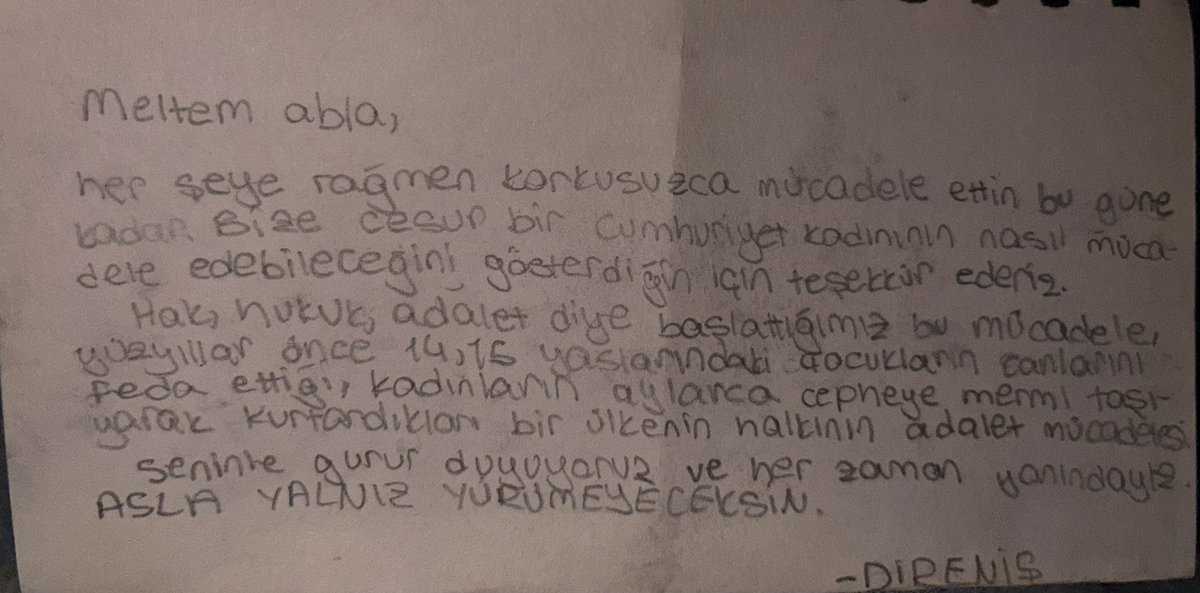 Meltem abla,
her şeye rağmen korkusuzca mücadele ettin bu güne
kadar. Bize cesur bir Cumhuriyet kadınının nasıl müca-
dele edebileceğini gösterdiğin için teşekkür ederiz.
Hak, hukuk, adalet diye başlattığımız bu mücadele,
yüzyıllar önce 14,15 yaşlarındaki çocukların canlarını
feda ettiği, kadınların aylarca cepheye mermi taşı-
yarak kurtardıkları bir ülkenin halkının adalet mücadelesi
seninle gurur duyuyoruz ve her zaman yanındayız.
ASLA YALNIZ YÜRÜMEYECEKSİN.
-DİRENİŞ